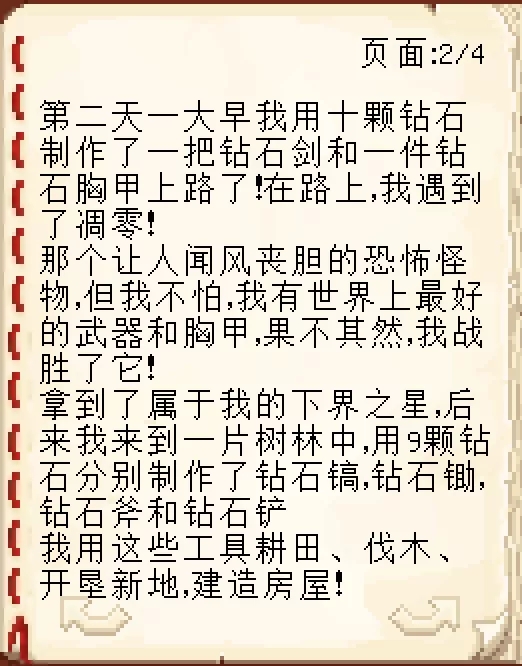 页面:2/4
第二天一大早我用十颗钻石
制作了一把钻石剑和一件钻
石胸甲上路了!在路上,我遇到
了凋零!
那个让人闻风丧胆的恐怖怪
物,但我不怕,我有世界上最好
的武器和胸甲,果不其然,我战
胜了它!
拿到了属于我的下界之星,后
来我来到一片树林中,用9颗钻
石分别制作了钻石镐,钻石锄,
钻石斧和钻石铲
我用这些工具耕田、伐木、
开垦新地,建造房屋!